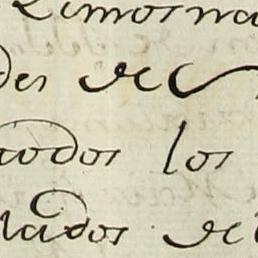 Limosna
des de
todos los
lados de